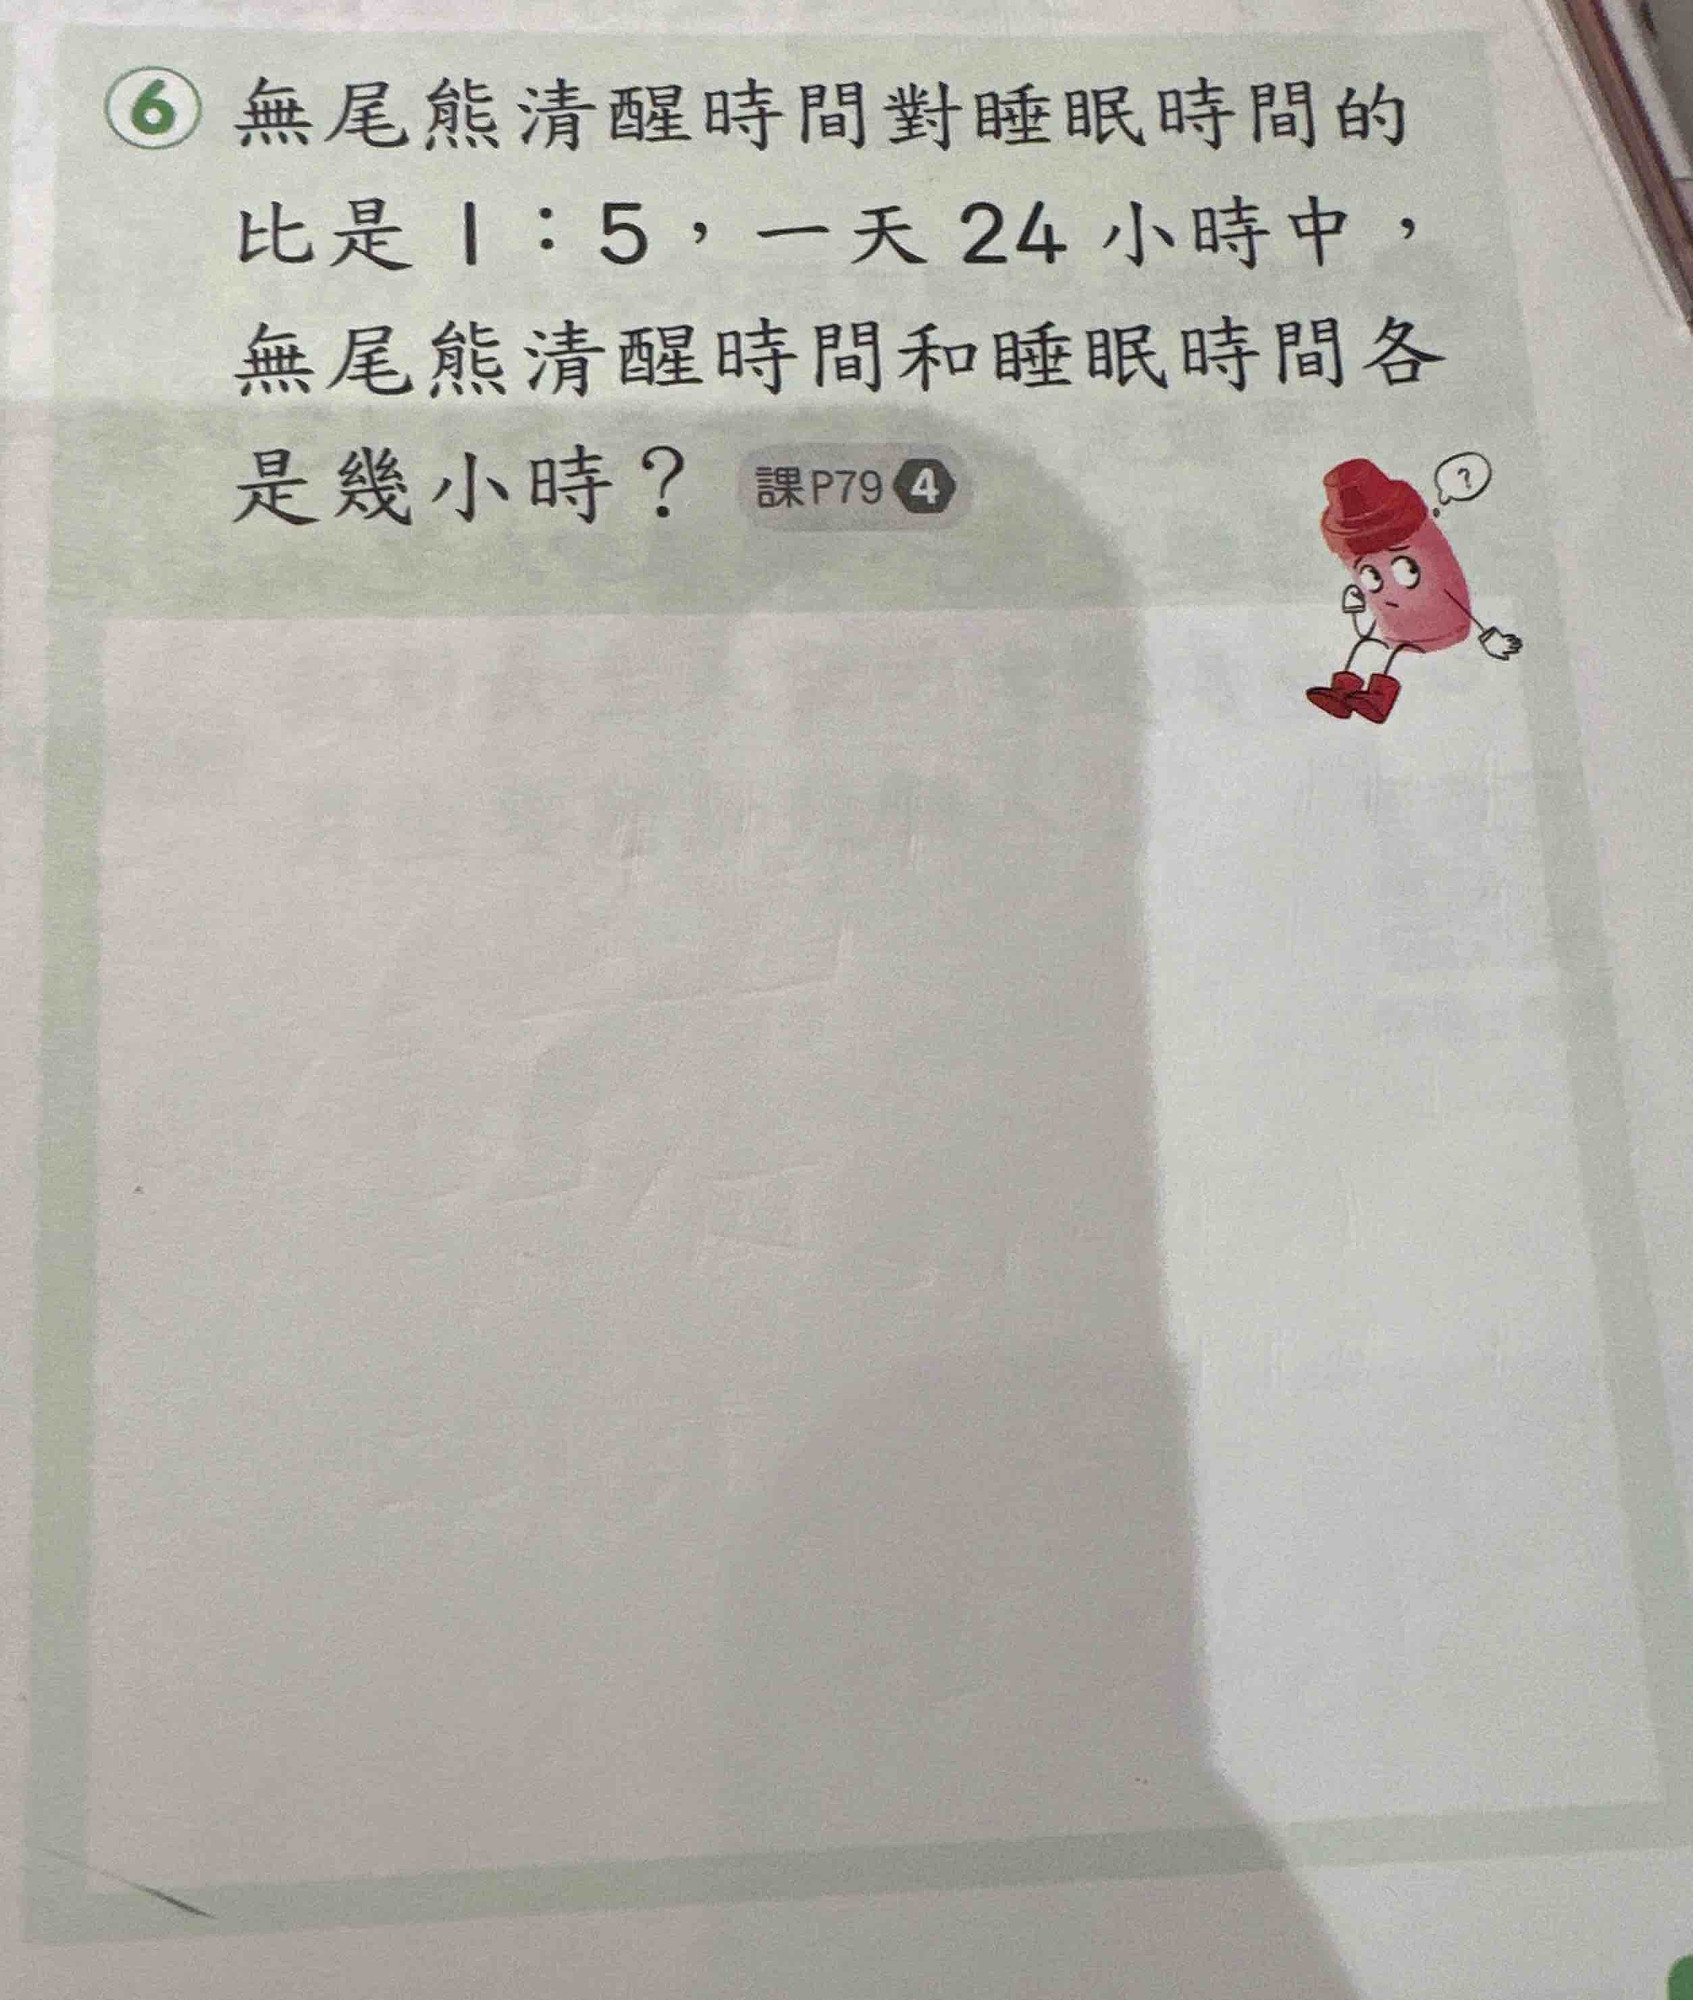 6 無尾熊清醒時間對睡眠時間的
比是 1：5，一天 24 小時中，
無尾熊清醒時間和睡眠時間各
是幾小時？ 課P79 4
?